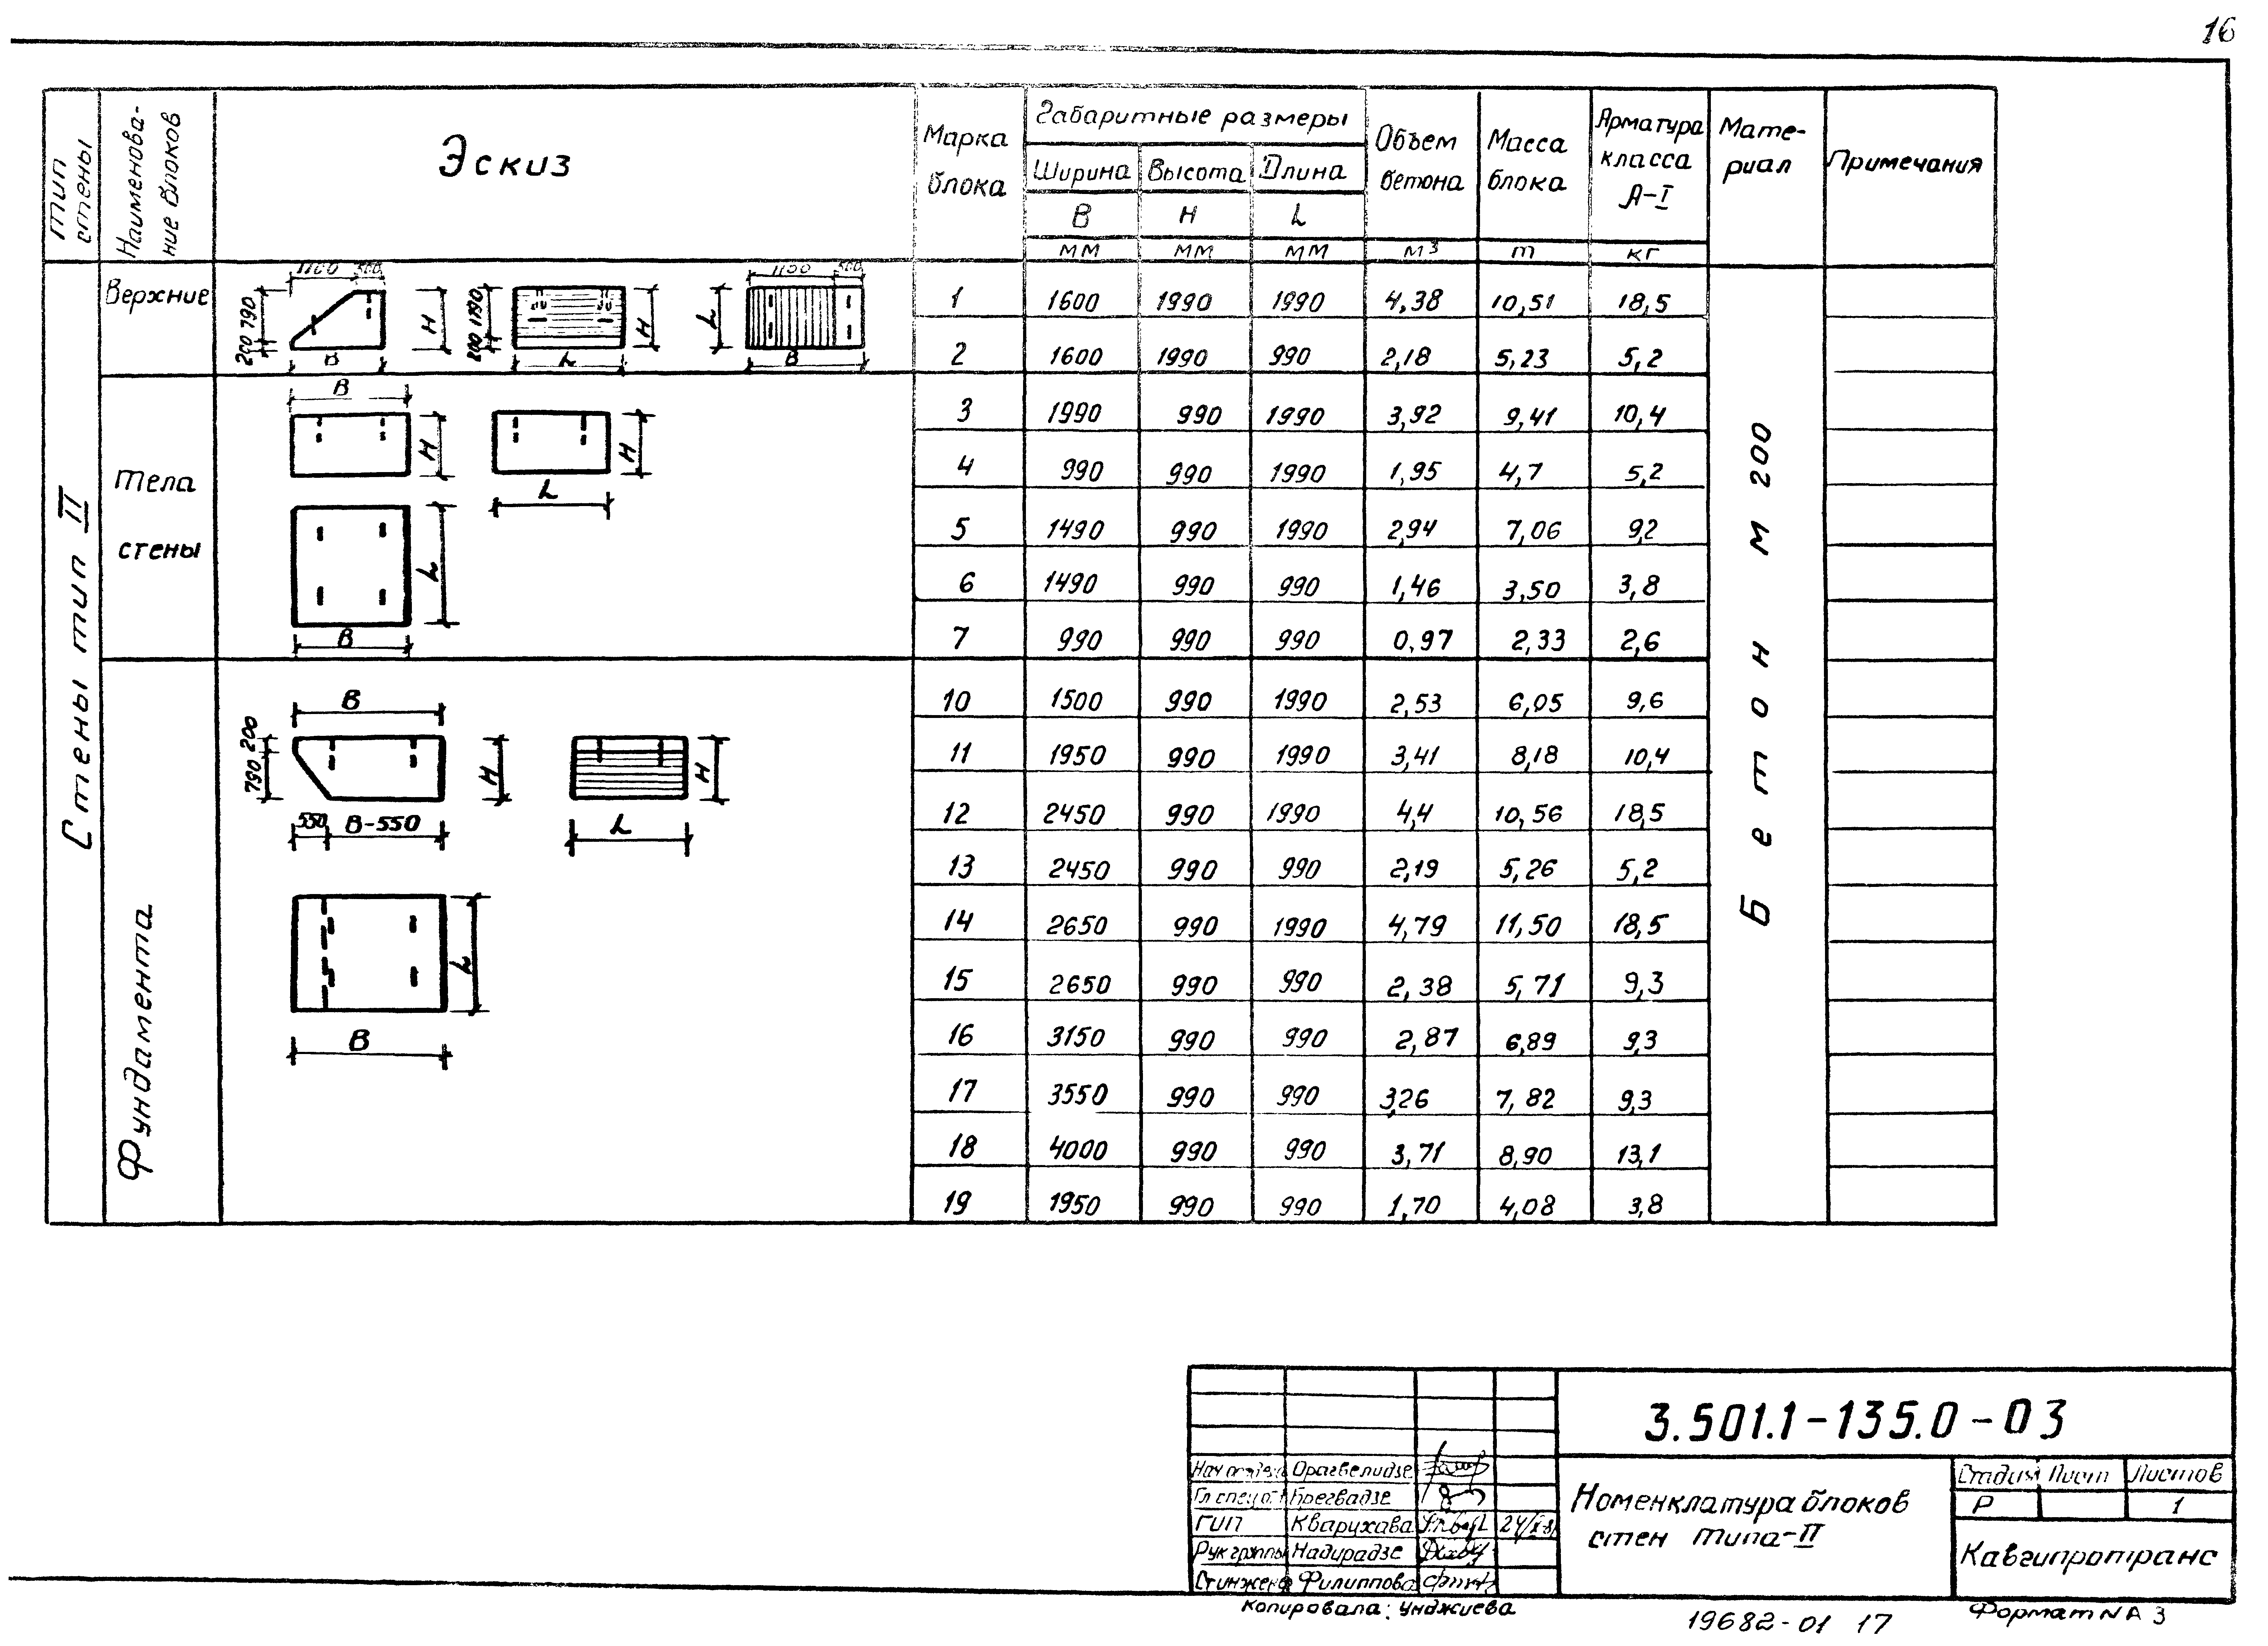 16
Тип стены
Наименова-
ние блоков
Эскиз
Марка блока
Габаритные размеры
Ширина Высота Длина
В Н L
мм мм мм
Объем бетона
м3
Масса блока
т
Арматура класса А-I
кг
Мате-
риал
Примечания
Стены тип II
Верхние
1100 500
200 790
Н
В
200 1790
Н
L
1100 500
L
В
1 1600 1990 1990 4,38 10,51 18,5
2 1600 1990 990 2,18 5,23 5,2
Тела
стены
В
Н
Н
L
L
В
3 1990 990 1990 3,92 9,41 10,4
4 990 990 1990 1,95 4,7 5,2
5 1490 990 1990 2,94 7,06 9,2
6 1490 990 990 1,46 3,50 3,8
7 990 990 990 0,97 2,33 2,6
Фундамента
В
790 200
Н
Н
550 В-550
L
L
В
10 1500 990 1990 2,53 6,05 9,6
11 1950 990 1990 3,41 8,18 10,4
12 2450 990 1990 4,4 10,56 18,5
13 2450 990 990 2,19 5,26 5,2
14 2650 990 1990 4,79 11,50 18,5
15 2650 990 990 2,38 5,71 9,3
16 3150 990 990 2,87 6,89 9,3
17 3550 990 990 3,26 7,82 9,3
18 4000 990 990 3,71 8,90 13,1
19 1950 990 990 1,70 4,08 3,8
Бетон М 200
3.501.1-135.0-03
Нач отдела Орагвелидзе
Гл спец от Брегвадзе
ГИП Кварухава
Рук группы Надирадзе
Ст инжене Филиппова
Номенклатура блоков
стен типа-II
Стадия Лист Листов
Р 1
Кавгипротранс
Копировала: Унджиева
19682-01 17
Формат N А 3